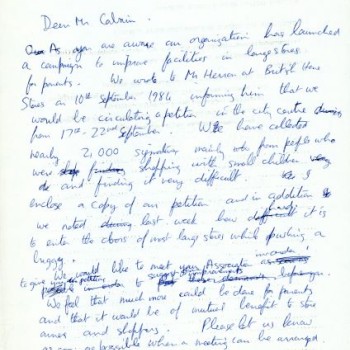 Dear Mr Calvin.
As you are aware our organization has launched
a campaign to improve facilities in large stores
for parents. We wrote to Mr Herron at British Home
Stores on 10th September 1986 informing him that we
would be circulating petition in the city centre during
from 17th - 22nd September. We have collected
nearly 2,000 signatures mainly from people who
were shopping with small children
do and finding it very difficult. I
enclose a copy of our petition and in addition
we noted last week how difficult it is
to enter the doors of most large stores while pushing a
buggy.
We would like to meet your Association
to give petition in order to suggest
We feel that much more could be done for parents
and that it would be of mutual benefit to store
and shoppers. Please let us know
as soon as possible when a meeting can be arranged.